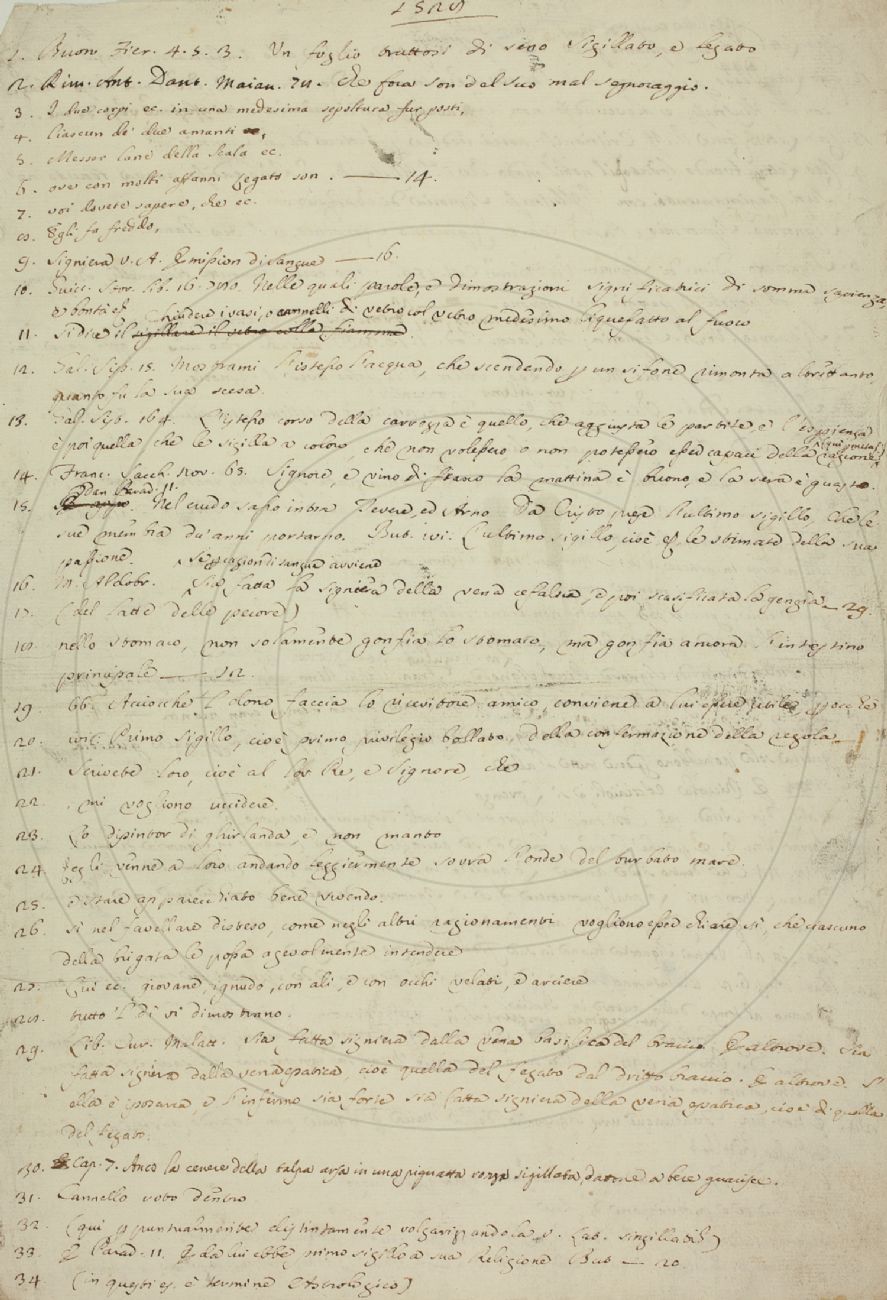 1. Buon. Fier. 4. 5. 3. Un foglio trattosi di seno Sigillato, e legato
2. Rim. Ant. Dant. Maian. 74. Che fora son del suo mal segnoraggio.
3. I due corpi ec. in una medesima sepoltura fur posti,
4. Ciascun de' due amanti
5. Messer Cane della Scala ec.
6. ove con molti affanni legato son. — 14.
7. voi dovete sapere, che ec.
8. Egli fa freddo,
9. Signiera v. A. Emission di sangue — 16.
10. Guicc. Stor. lib. 16. Nelle quali parole, e dimostrazioni significatrici di somma sapienza,
e bontà
Chiudere i vasi, o cannelli di vetro col vetro medesimo liquefatto al fuoco
11. Si dice il sigillare il vetro colla fiamma.
12. Gal. Sist. 15. Mostrami l'istesso l'acqua, che scendendo per un sifone rimonta altrettanto,
quanto fu la sua scesa.
13. Gal. Sist. 164. L'istesso corso della carrozza è quello, che aggiusta le partite e l'esperienza
è poi quella che le sigilla a coloro, che non volessero o non potessero esser capaci della ragione
14. Franc. Sacch. nov. 63. Signore, e vino di fiasco la mattina è buono, e la sera è guasto.
Dan. Parad. 11.
15. Nel crudo sasso intra Tevere, ed Arno Da Cristo prese l'ultimo sigillo, Che le
sue membra du' anni portarno. But. ivi. L'ultimo sigillo, cioè le stimate della sua
passione.
16. M. Aldobr. Sia fatta la signiera della vena cefalica, e poi scarificata la gengia — 29.
17. (del latte delle pecore)
18. nello stomaco, non solamente gonfia lo stomaco, ma gonfia ancora l'intestino
principale — 12.
19. 66. Acciocchè 'l dono faccia lo ricevitore amico, conviene a lui essere utile, perocchè
20. Primo sigillo, cioè primo privilegio bollato, della confermazione della regola
21. Scrivete loro, cioè al lor Re, e Signore, che
22. mi vogliono uccidere.
23. Lo dipintor di ghirlanda, e non manto
24. Egli venne a loro andando leggiermente sovra l'onde del turbato mare.
25. è stare apparecchiato bene vivendo.
26. Si nel favellare disteso, come negli altri ragionamenti vogliono esser chiare sì, che ciascuno
della brigata le possa agevolmente intendere
27. Qui ec. giovane, ignudo, con ali, e con occhi velati, e arciere
28. tutto 'l dì vi dimostrano.
29. Lib. Cur. Malatt. Sia fatta signiera dalla vena basilica del braccio. E altrove. Sia
fatta signiera dalla vena epatica, cioè quella del fegato dal dritto braccio. E altrove. S'
ella è iposarca, e l'infermo sia forte sia fatta signiera della vena epatica, cioè di quella
del fegato.
30. Cap. 7. Anco la cenere della talpa arsa in una pignatta rozza sigillata, datone a bere guarisce.
31. Cannello voto dentro
32. (qui puntualmente distintamente volgarizzandola v. Lat. singillatim)
33. Parad. 11. E da lui ebbe primo sigillo a sua Religione But — 20.
34. (in questi es. è termine Astrologico)